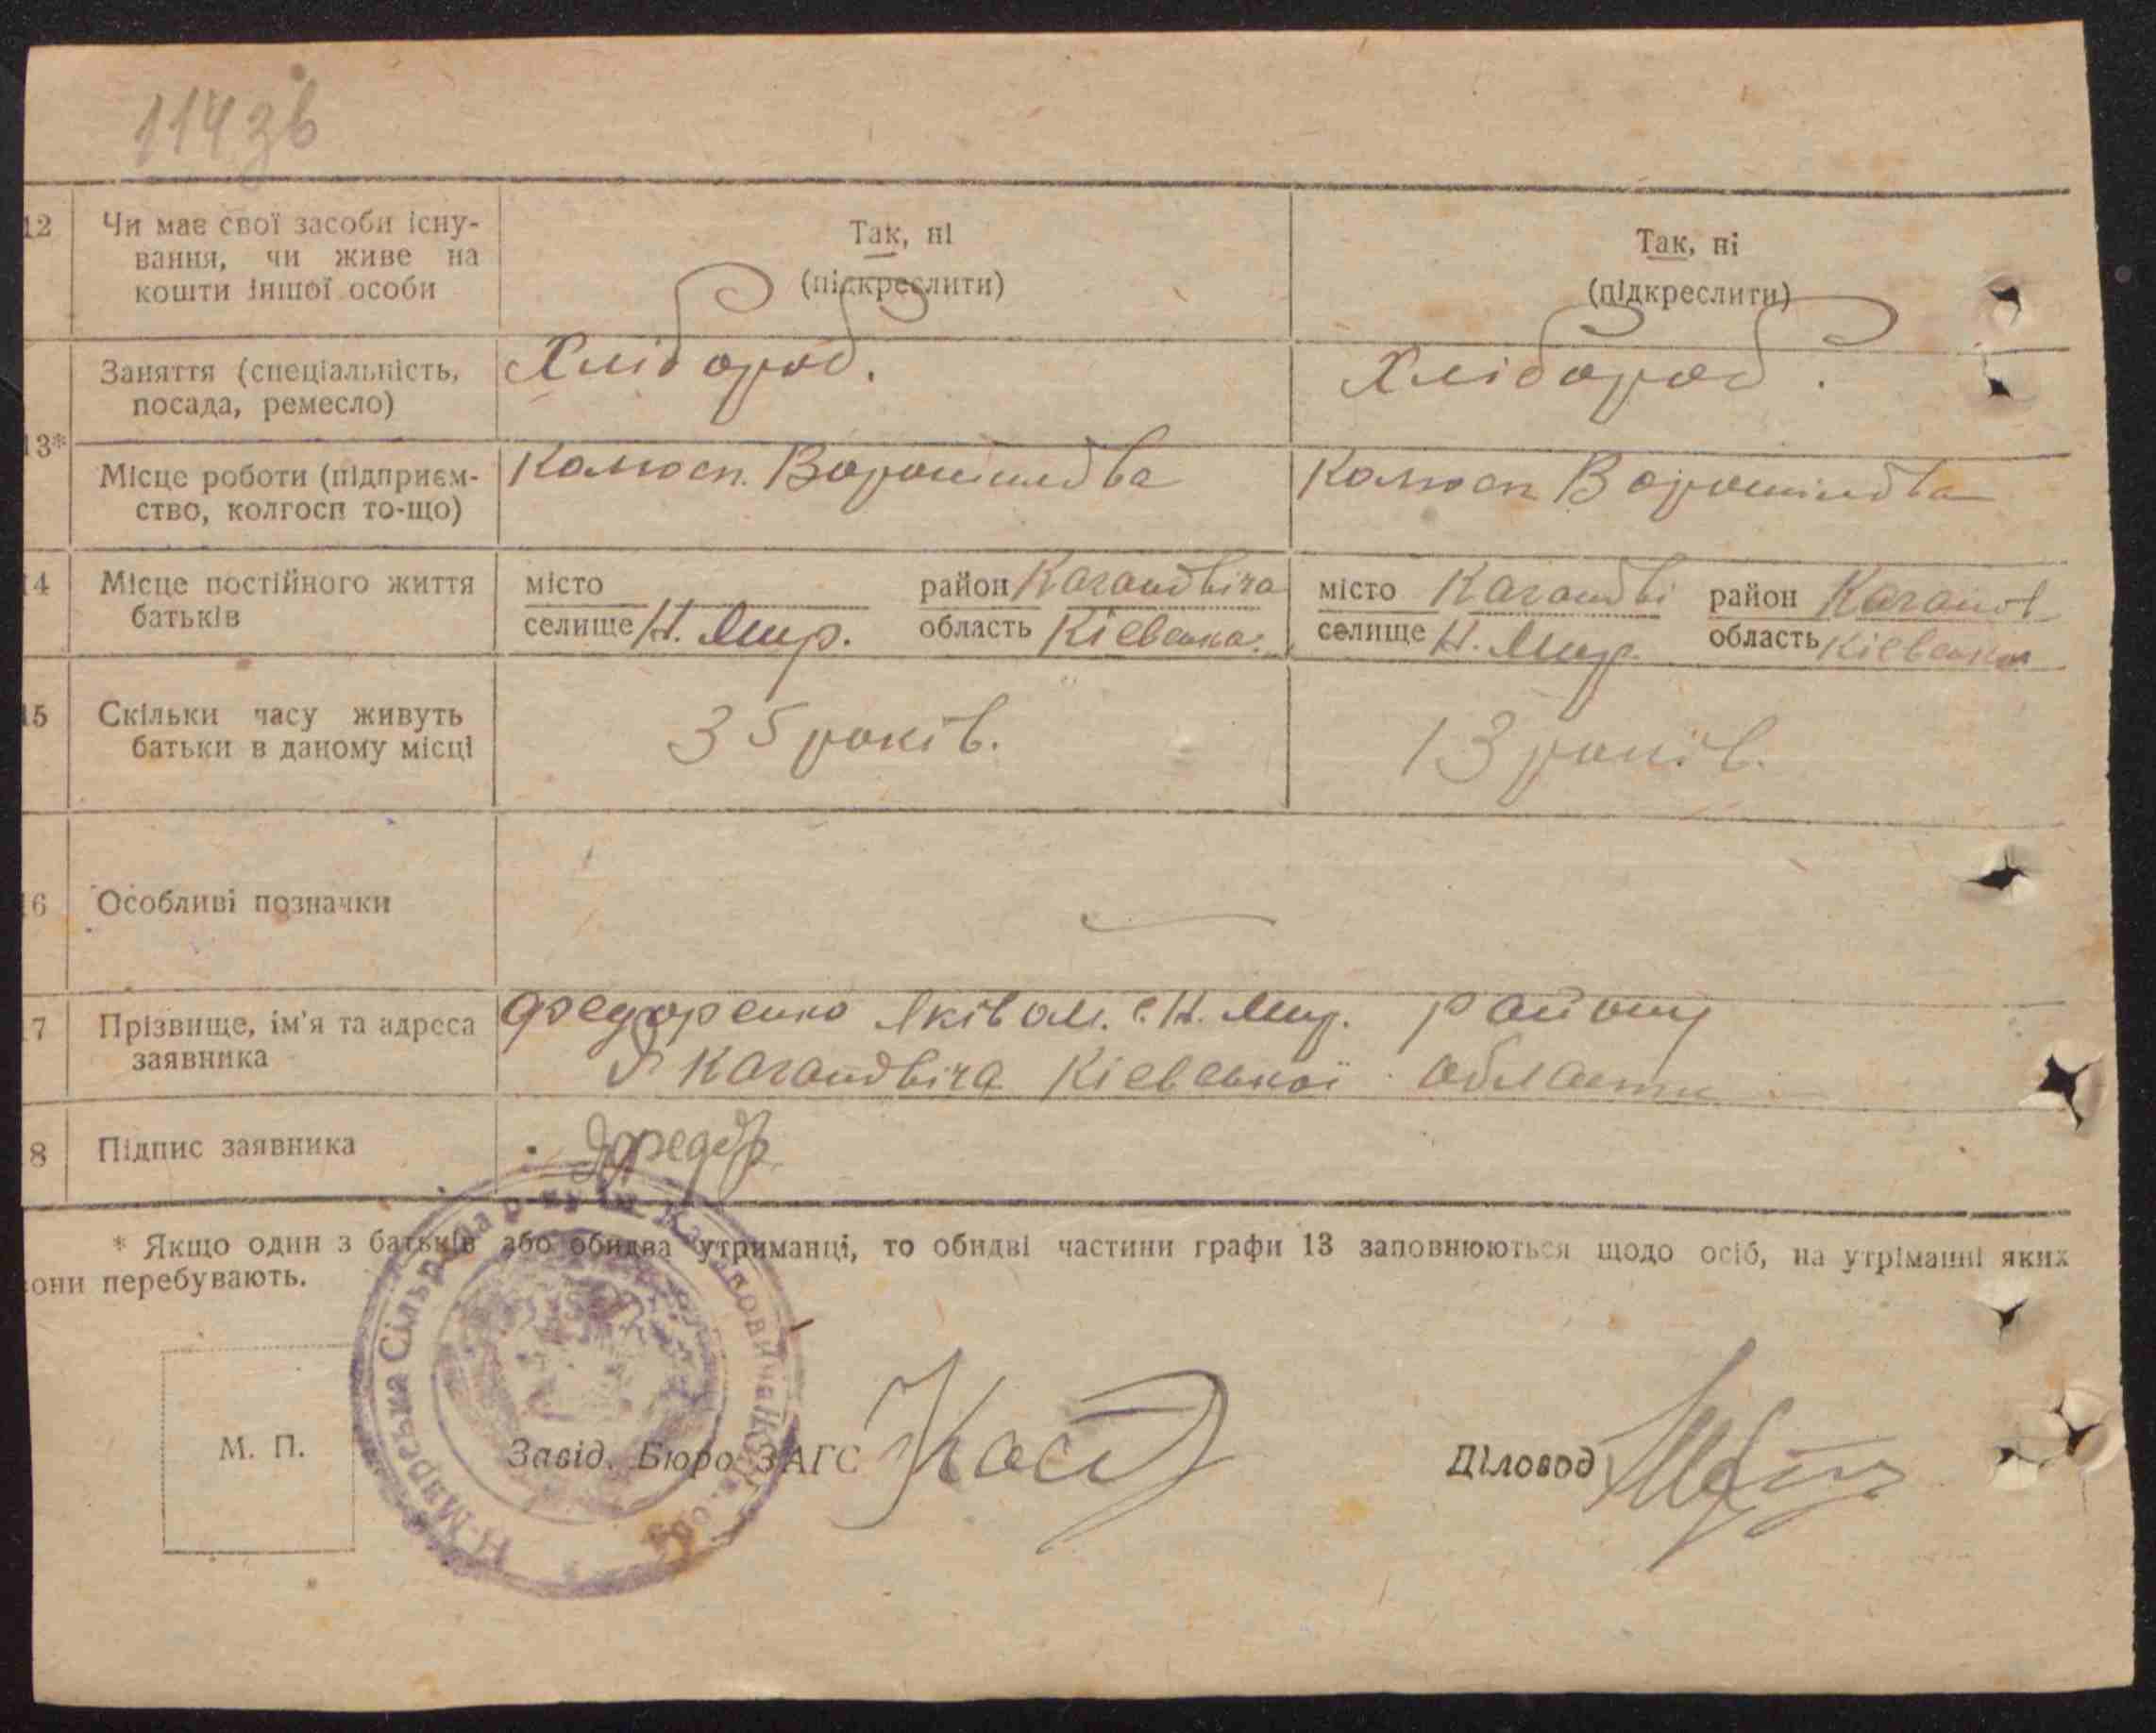 114зв
12 Чи має свої засоби існу- Так, ні Так, ні
вання, чи живе на (підкреслити) (підкреслити)
кошти іншої особи
Заняття (спеціальність, Хлібороб. Хлібороб.
посада, ремесло)
13*
Місце роботи (підприєм- Колгосп. Ворошилова Колгосп Ворошилова
ство, колгосп то-що)
14 Місце постійного життя місто район Кагановіча місто Каганові район Каганов
батьків селище Н. Мир. область Кіевська. селище Н. Мир. область Кіевська
15 Скільки часу живуть 35 років. 13 років.
батьки в даному місці
16 Особливі позначки
17 Прізвище, ім'я та адреса Федоренко Яків ом. с. Н. Мир. району
заявника Кагановіча Кіевської області
18 Підпис заявника Федор
* Якщо один з батьків або обидва утриманці, то обидві частини графи 13 заповнюються щодо осіб, на утріманні яких
вони перебувають.
Н-Мирська Сільрада р-ну ім. Кагановича
М. П. Завід. Бюро ЗАГС Діловод